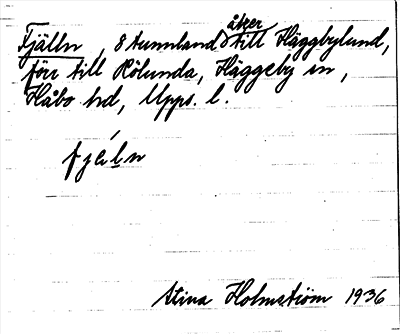 Fjälln, 8 tunnland åker till Häggbylund,
förr till Kölunda, Häggeby sn,
Håbo hd, Upps. l.
fjäln
Stina Holmström 1936